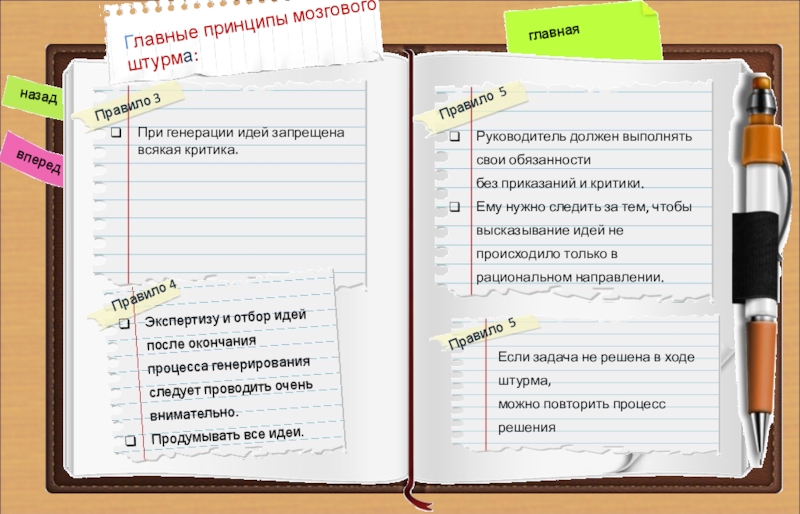 Главные принципы мозгового
штурма:
главная
назад
вперед
Правило 3
❑ При генерации идей запрещена
всякая критика.
Правило 4
❑ Экспертизу и отбор идей
после окончания
процесса генерирования
следует проводить очень
внимательно.
❑ Продумывать все идеи.
Правило 5
❑ Руководитель должен выполнять
свои обязанности
без приказаний и критики.
❑ Ему нужно следить за тем, чтобы
высказывание идей не
происходило только в
рациональном направлении.
Правило 5
Если задача не решена в ходе
штурма,
можно повторить процесс
решения